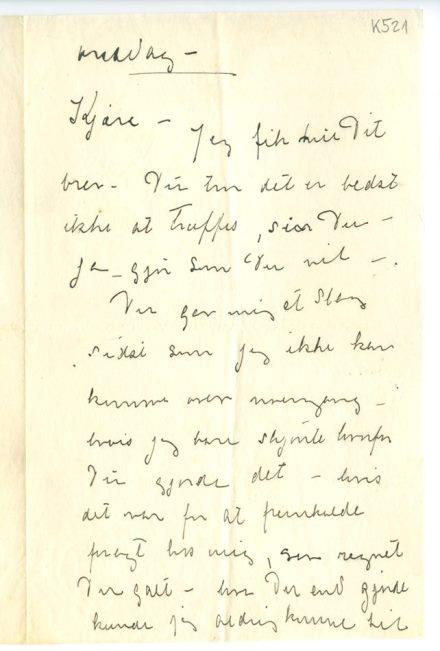 K521
onsdag –
Kjære – Jeg fik Dit
brev – Du tror det er bedst
ikke at træffes, siær Du –
Ja – gjør som Du vil –
Du gav mig et Slag
sidst som jeg ikke kan
komme over noengang –
hvis jeg bare skjønte hvorfor
Du gjorde det – hvis
det var for at fremkalde
fragt hos mig, saa regnet
Du galt – hva Du end gjorde
kunde jeg aldrig komme til